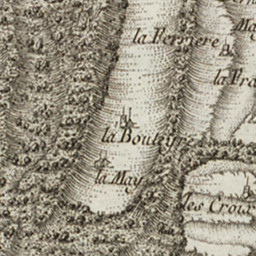 la Ferriere
la Bouteyre
la May
les Crou
la Fra
Ma